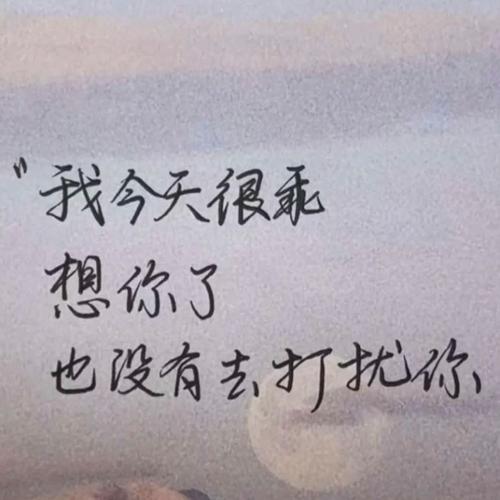 "我今天很乖
想你了
也没有去打扰你